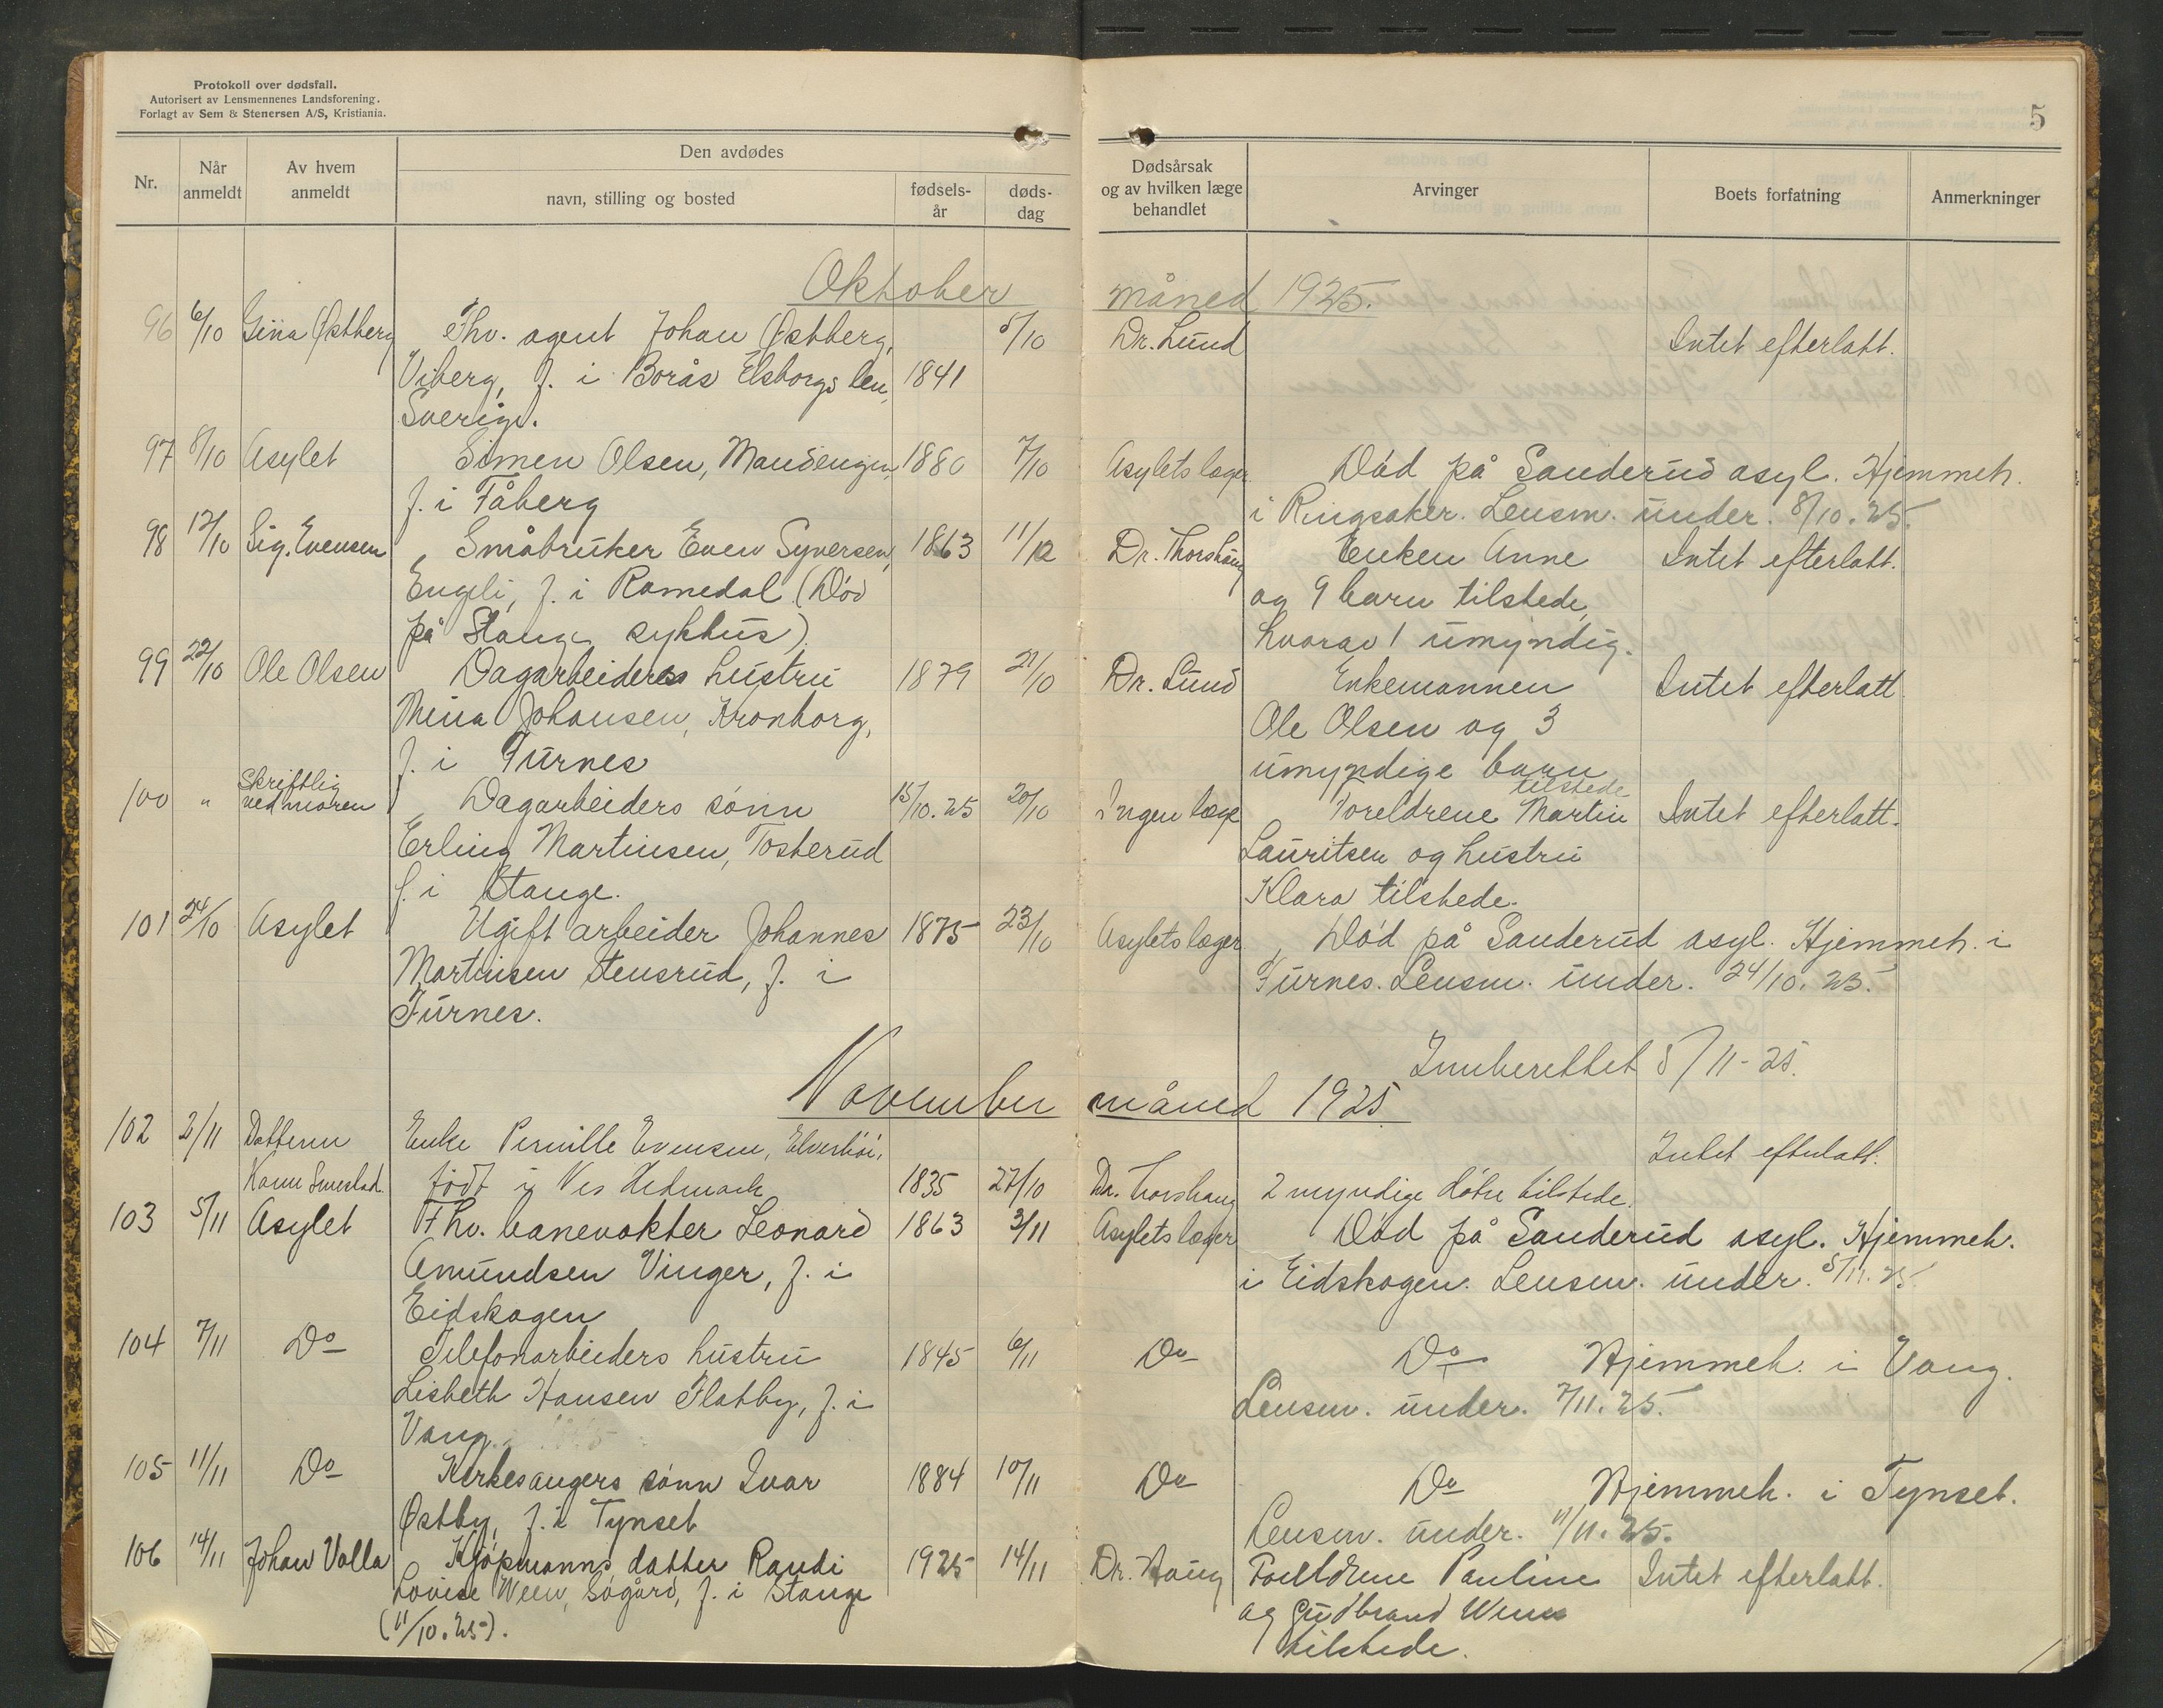 Protokoll over dødsfall.
Autorisert av Lensmennenes Landsforening.
Forlagt av Sem & Stenersen A/S, Kristiania.
5
Nr.
Når anmeldt
Av hvem anmeldt
Den avdødes
navn, stilling og bosted
fødsels-år
døds-dag
Dødsårsak og av hvilken læge behandlet
Arvinger
Boets forfatning
Anmerkninger
Oktober måned 1925.
96 6/10 Gina Østberg Fhv. agent Johan Østberg, 5/10 Dr. Lund Intet efterlatt.
Viberg, f. i Borås Elsborgs len, 1841
Sverige.
97 8/10 Asylet Simen Olsen, Maudengen, 1880 7/10 Asylets læger Død på Sanderud asyl. Hjemmeh.
f. i Fåberg i Ringsaker. Lensm. under. 8/10.25.
98 12/10 Sig. Evensen Småbruker Even Syversen, 1863 11/12 Dr. Thorshaug Enken Anne Intet efterlatt.
Engeli, f. i Romedal (Død og 9 barn tilstede,
på Stange sykhus) hvorav 1 umyndig.
99 22/10 Ole Olsen Dagarbeiders hustru 1879 21/10 Dr. Lund Enkemannen Intet efterlatt
Mina Johansen, Kronborg, Ole Olsen og 3
f. i Furnes umyndige barn
tilstede
100 " Skriftlig ved moren Dagarbeiders sønn 15/10.25 20/10 Ingen læge Foreldrene Martin Intet efterlatt.
Erling Martinsen, Tosterud Lauritsen og hustru
f. i Stange. Klara tilstede.
101 24/10 Asylet Ugift arbeider Johannes 1875 23/10 Asylets læger Død på Sanderud asyl. Hjemmeh. i
Martinsen Stensrud, f. i Furnes. Lensm. under. 24/10.25.
Furnes.
Innberettet 5/11-25.
November måned 1925.
102 2/11 Datteren Enke Pernille Evensen, Elverhøi, Intet efterlatt.
født i Nes Hedmark 1835 27/10 Dr. Thorshaug 2 myndige døtre tilstede.
103 5/11 Asylet Fhv. banevokter Leonard 1863 3/11 Asylets læger Død på Sanderud asyl. Hjemmeh.
Amundsen Vinger, f. i i Eidskogen. Lensm. under. 5/11.25.
Eidskogen
104 7/11 Do Telefonarbeiders hustru 1845 6/11 Do Do Hjemmeh. i Vang.
Lisbeth Hansen Flatby, f. i Lensm. under. 7/11.25.
Vang.
105 11/11 Do Kirkesangers sønn Ivar 1884 10/11 Do Do Hjemmeh. i Tynset.
Østby, f. i Tynset Lensm. under. 11/11.25.
106 14/11 Johan Valla Kjøpmanns datter Randi 1925 14/11 Dr. Haug Foreldrene Pauline Intet efterlatt.
Lovise Ween, Søgård, f. i Stange og Gudbrand Ween
(11/10.25). tilstede.